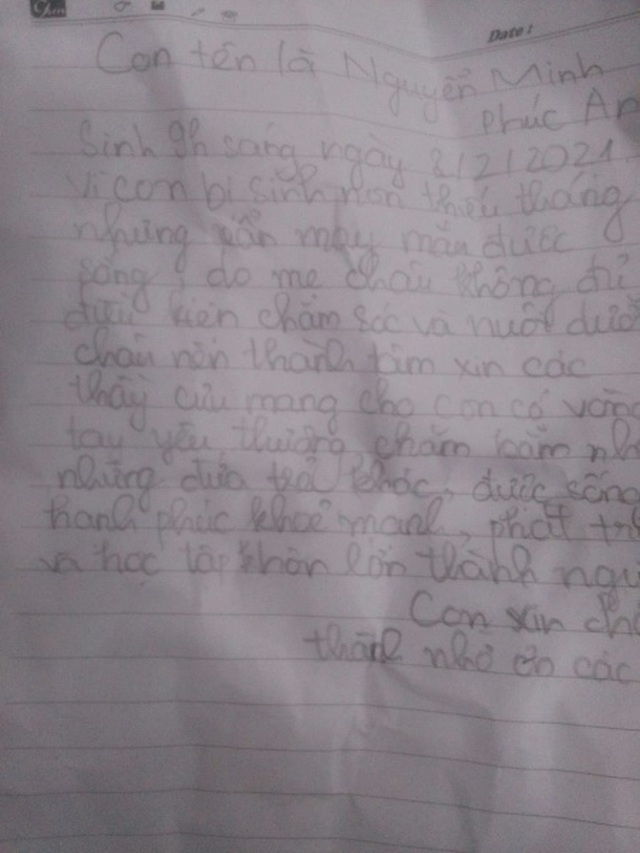 Date:
Con tên là Nguyễn Minh
Phúc An
Sinh 9h sáng ngày 8/2/2021
Vì con bị sinh non thiếu tháng
nhưng vẫn may mắn được
sống, do mẹ cháu không đủ
điều kiện chăm sóc và nuôi dưỡ
cháu nên thành tâm xin các
thầy cưu mang cho con có vòng
tay yêu thương, chăm bẵm nh
những đứa trẻ khác, được sống
hạnh phúc khoẻ mạnh, phát tri
và học tập khôn lớn thành ngư
Con xin ch
thành nhớ ơn các